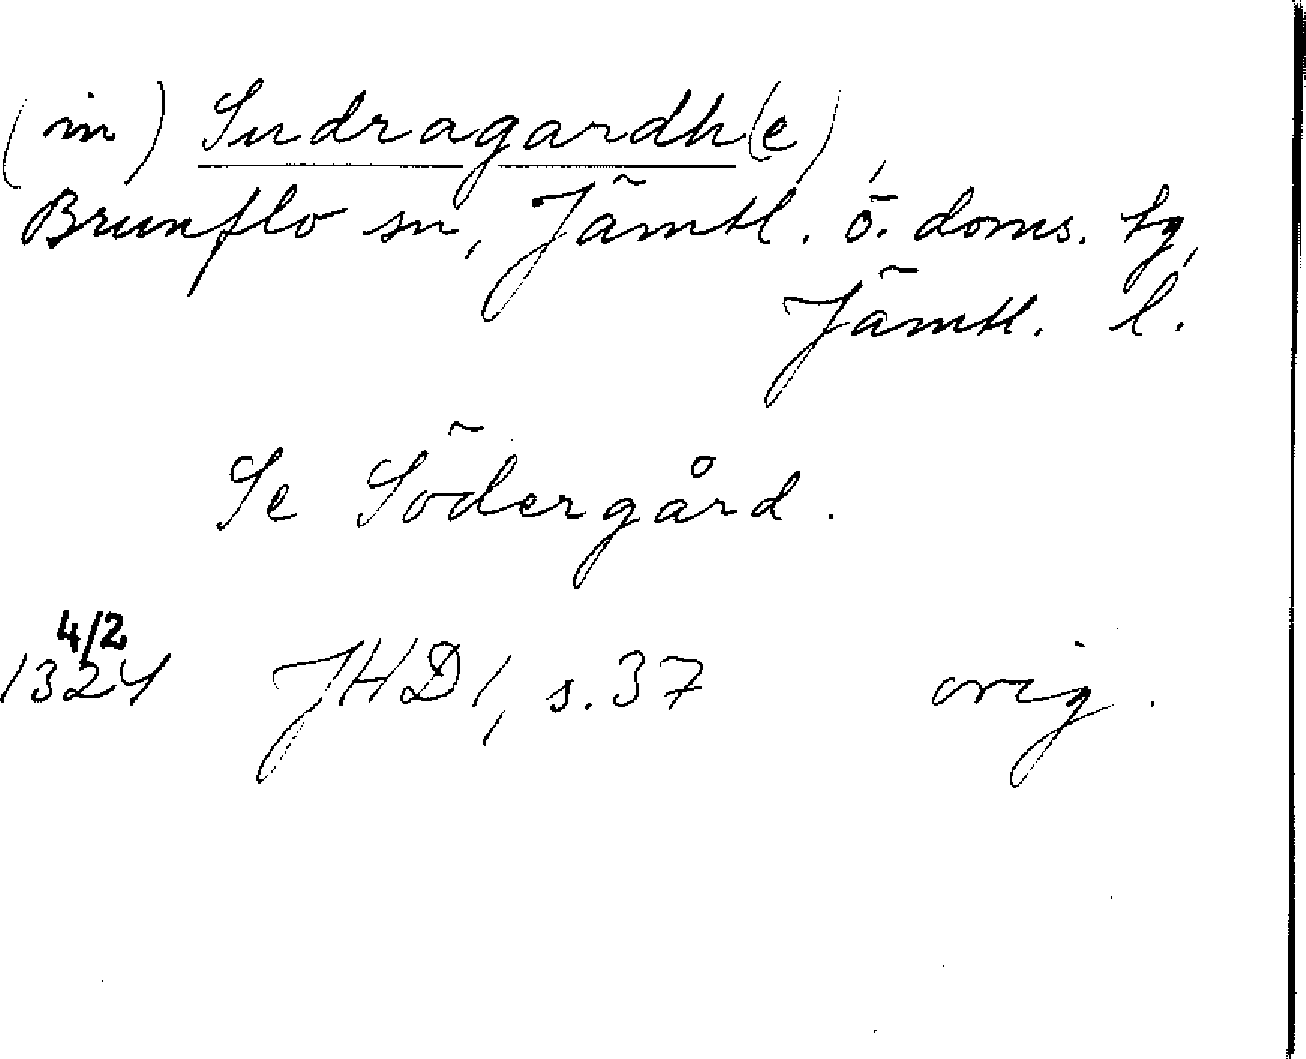 (in) Sudragardh(e),
Brunflo sn, Jämtl. ö. doms. tg,
Jämtl. l.
Se Södergård.
4/2
1324 JHD 1, s. 37 orig.